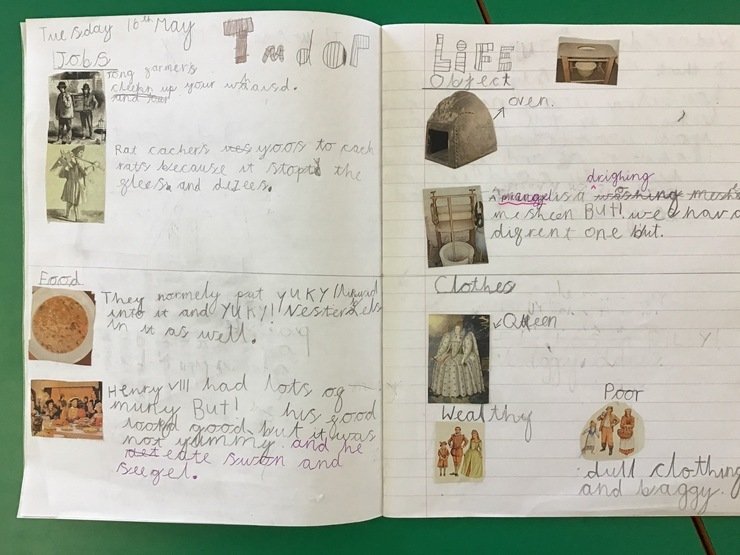 Tuesday 16th May
Tudor
Jobs
Tong farmers
up your
Rat cachers yoos to cach
rats because it stopt the
gleas and dezees.
Food
They normely pat YUKY!
into it and YUKY! Vestervels
in it as well.
Henry VIII had lots of
muny But! his food
lookd good but it was
not yummy. and he
eate swon and
seegel.
LiFE
Object
oven.
A mangel is a drighing
mesheen BUT! we have a
digrent one but.
Clothes
Queen
Wealthy
Poor
dull clothing
and baggy.